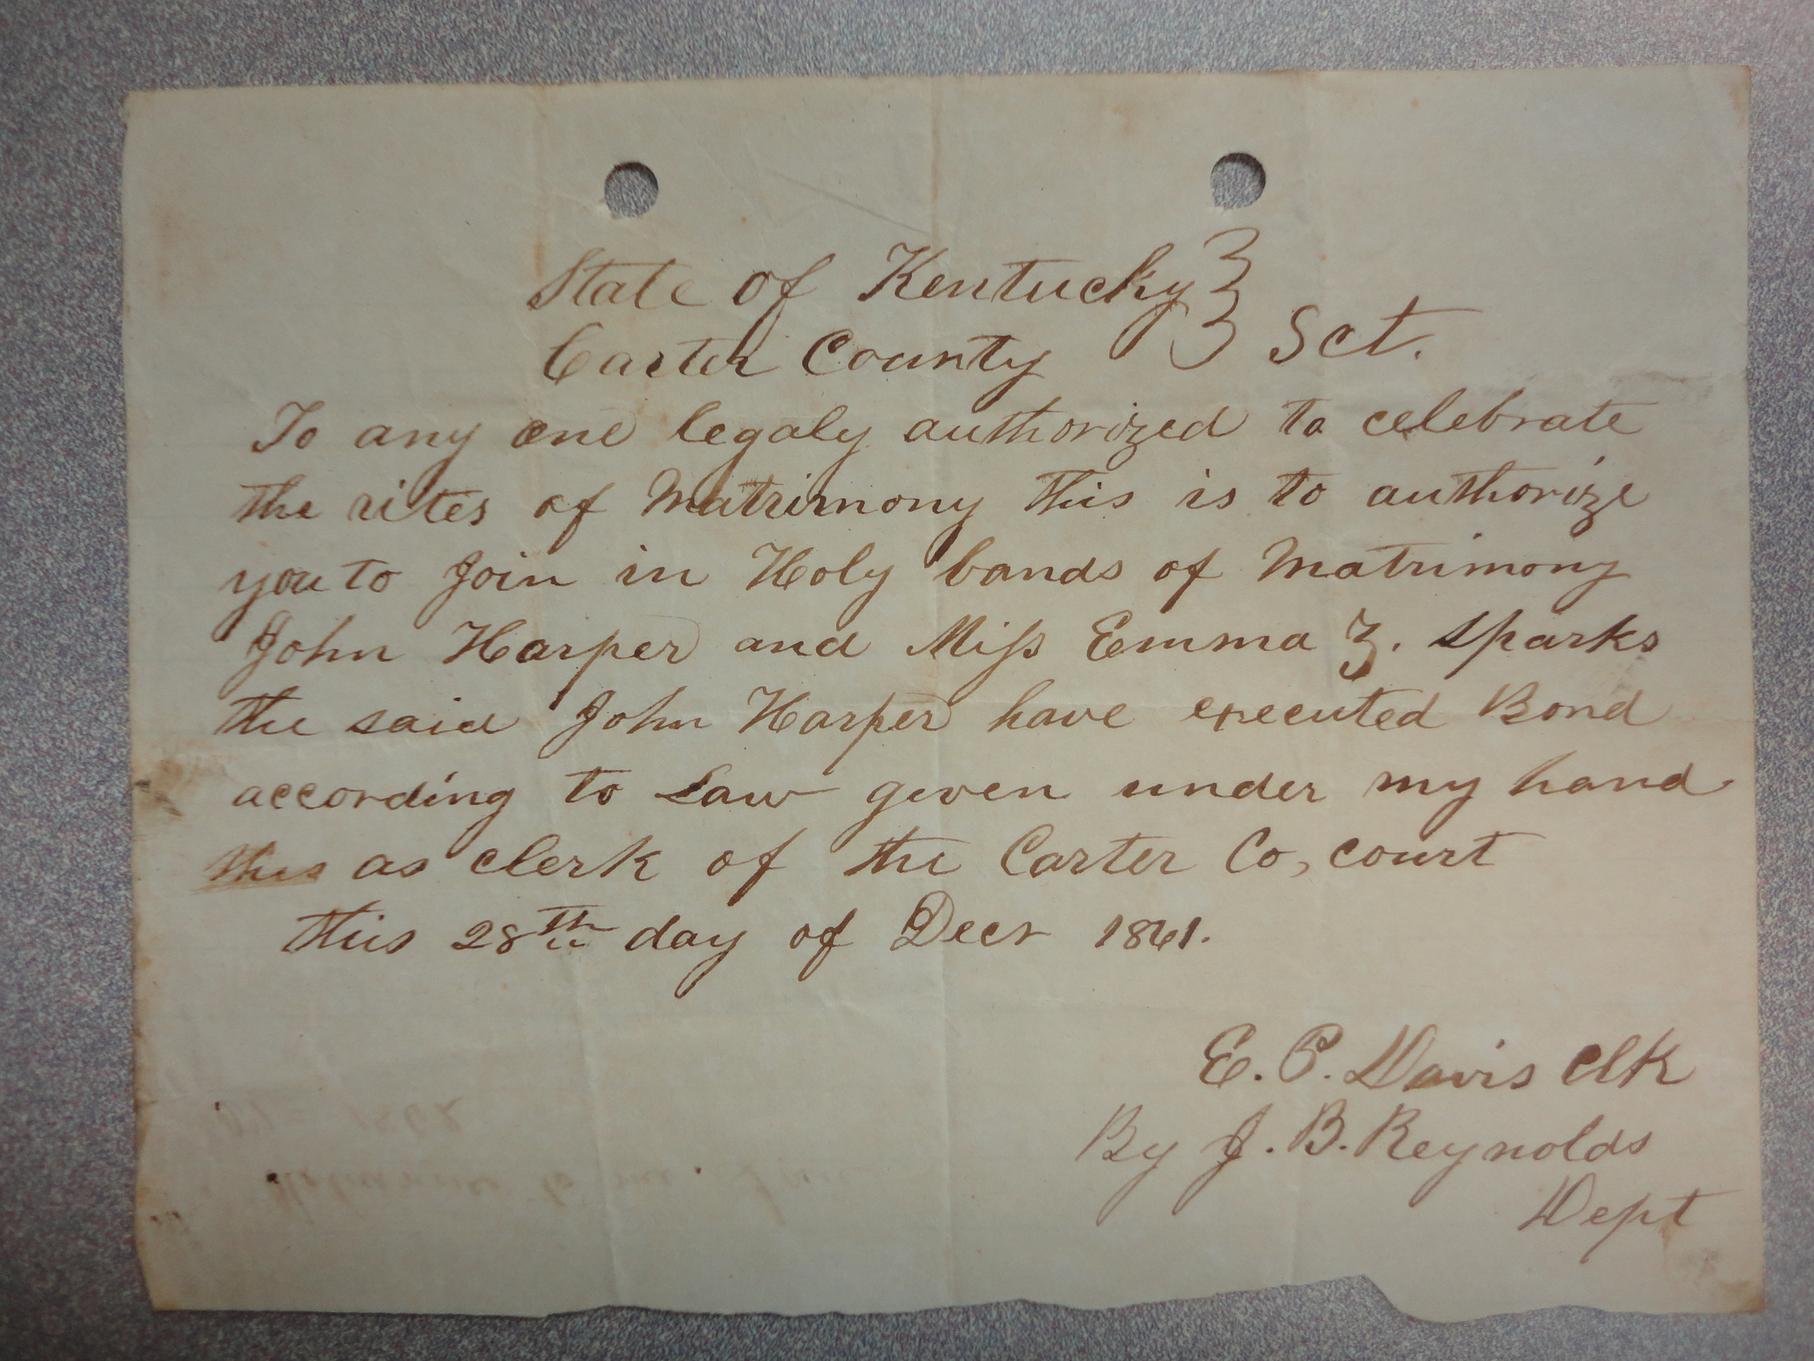 State of Kentucky }
Carter County } Sct.
To any one legaly authorized to celebrate
the rites of Matrimony this is to authorize
you to Join in Holy bands of Matrimony
John Harper and Miss Emma Z. Sparks
the said John Harper have executed Bond
according to Law given under my hand
this as clerk of the Carter Co, court
this 28th day of Decr 1861.
E. P. Davis Clk
By J. B. Reynolds
Dept
1862